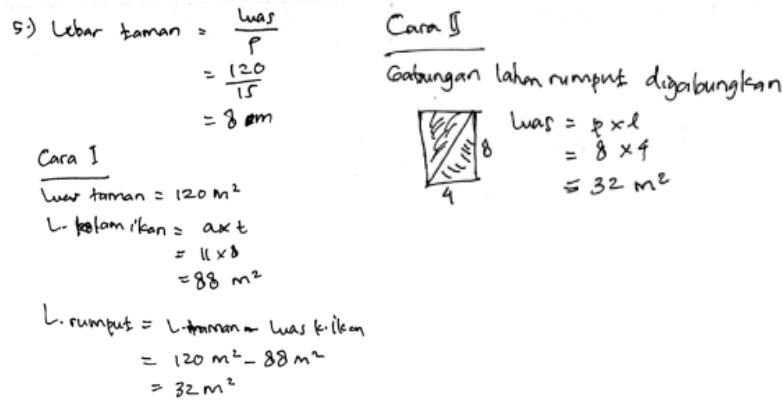 5.) Lebar taman = luas
p
= 120
15
= 8 m
Cara I
Luas taman = 120 m²
L. kolam ikan = a x t
= 11 x 8
= 88 m²
L. rumput = L. taman - luas k. ikan
= 120 m² - 88 m²
= 32 m²
Cara II
Gabungan lahan rumput digabungkan
8
4
luas = p x l
= 8 x 4
= 32 m²